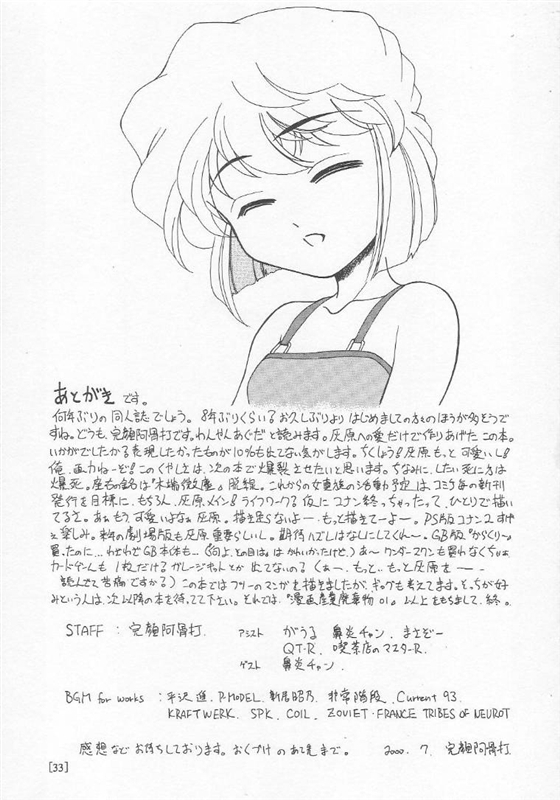 あとがきです。
何年ぶりの同人誌でしょう。8年ぶりくらい お久しぶりより はじめましての方のほうが多そうで
すね。どうも、完顔阿骨打です。わんやんあぐだと読みます。灰原への愛だけで作りあげた この本。
いかがでしたか 表現したかったものが10%も出てない気がします。ちくしょう 灰原もっと可愛いし
俺 画力ねーぞ このくやしさは、次の本で爆裂させたいと思います。ちなみに、したい死に方は
爆死。座右の銘は「木端微塵」 これからの の活動 は コミケ毎の新刊
発行を目標に、もちろん 灰原メイン ライフワーク 仮にコナン終っちゃったって、ひとりで描い
てるさ。あぁもう可愛いよなぁ灰原。描き足らないよー もっと描きてーよー。PS版コナン2
楽しみ。 の劇場版も灰原重要らしいし。期待 はなしにしてくれ〜。GB版「からくり
買ったのに… GB本体も… (何よ、その目は はかわいかったけど) あ〜 ワンダースワンも買わなくちゃ
カードゲームも 1枚だけ ガレージキットとか出てないの (あ〜、もっと、もっと灰原を——
) この本ではフリーのマンガを描きましたが、ギャグも考えてます。どっちが好
みという人は、次以降の本を待ってて下さい。それでは、 以上をもちまして、終。
STAFF : 完顔阿骨打 アシスト がうる 鼻炎チャン まさどー
QT-R. 喫茶店のマスターR.
ゲスト 鼻炎チャン.
BGM for works : 平沢進. P-MODEL. 新居昭乃. 非常階段. Current 93.
KRAFTWERK. SPK. COIL. ZOVIET・FRANCE TRIBES OF NEUROT
感想などお待ちしております。おくづけのあて先まで。 2000. 7. 完顔阿骨打
[33]